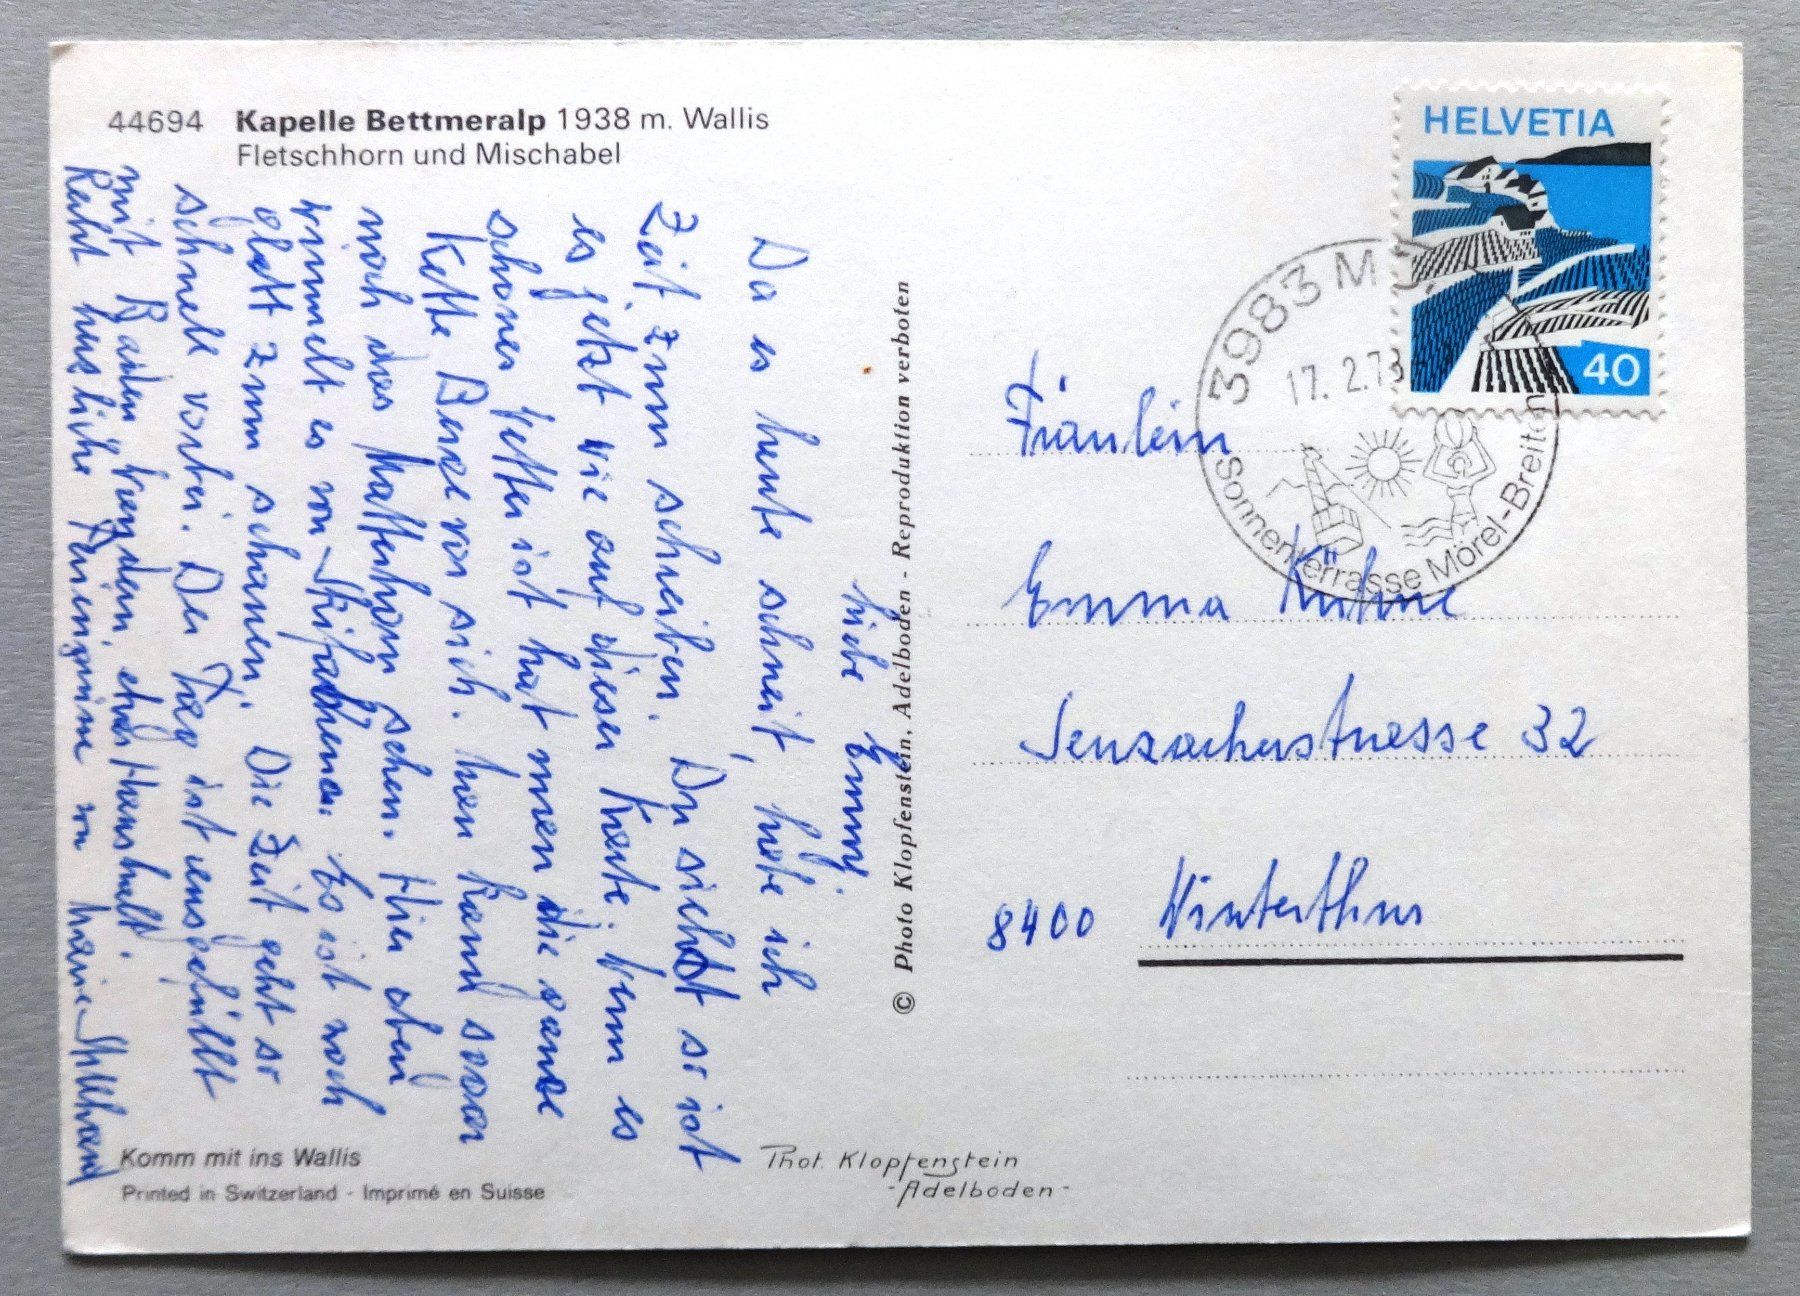 44694 Kapelle Bettmeralp 1938 m. Wallis
Fletschhorn und Mischabel
Liebe Emmy.
Da es heute schneit, habe ich
Zeit zum schreiben. Du siehst so ist
es jetzt wie auf dieser Karte. Wenn es
schönes Wetter ist hat man die ganze
Kette Berge vor sich. Man kann sogar
noch das Matterhorn sehen. Hier oben
wimmelt es von Skifahrern. Es ist noch
glatt zum schauen. Die Zeit geht so
schnell vorbei. Der Tag ist ausgefüllt
mit Baden, Wandern, etwas Haushalt.
Recht herzliche Feriengrüsse von Marie
© Photo Klopfenstein, Adelboden - Reproduktion verboten
Komm mit ins Wallis
Printed in Switzerland - Imprimé en Suisse
Phot. Klopfenstein
-Adelboden-
HELVETIA
40
3983
17. 2. 73
Sonnenterrasse Mörel-Breiten
Fräulein
Emma Kühne
Seuzacherstrasse 32
8400 Winterthur